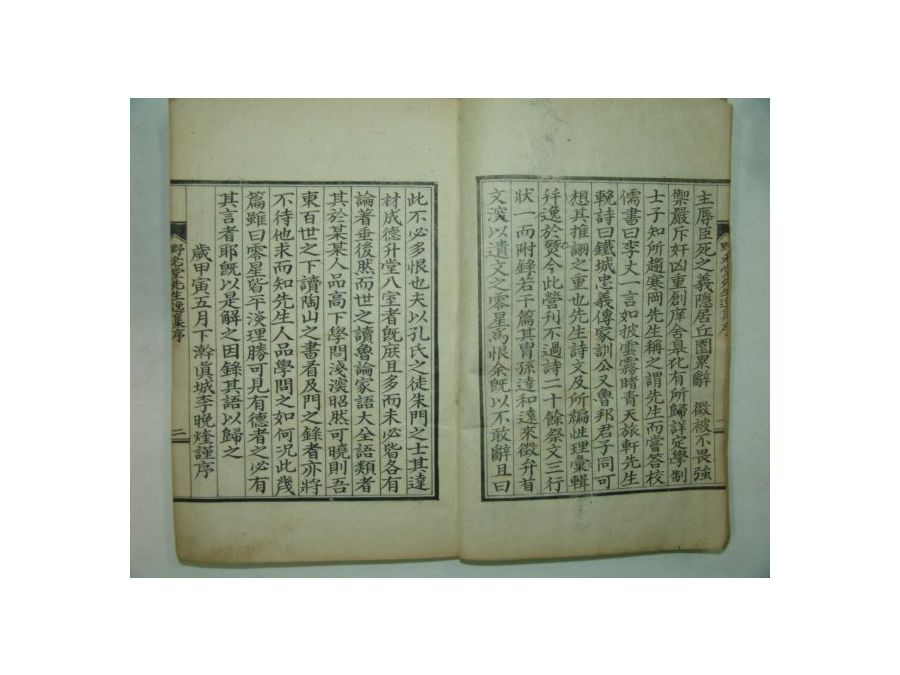 主辱臣死之義隱居丘園累辭 徵被不畏強
禦嚴斥奸凶重創庠舍皐比有所歸詳定學制
士子知所趨寒岡先生稱之謂先生而嘗答校
儒書曰李丈一言如披雲霧睹青天旅軒先生
輓詩曰鐵城忠義傳家訓公又魯邦君子同可
想其推詡之重也先生詩文及所編性理彙輯
幷逸於燹今此營刊不過詩二十餘祭文三行
狀一而附錄若干篇其胄孫達和達來徵弁首
文深以遺文之零星爲恨余旣以不敢辭且曰
野老堂先生逸集序 一
此不必多恨也夫以孔氏之徒朱門之士其達
材成德升堂入室者旣庶且多而未必皆各有
論著垂後然而世之讀魯論家語大全語類者
其於某某人品高下學問淺深昭然可曉則吾
東百世之下讀陶山之書者及門之錄者亦將
不待他求而知先生人品學問之如何況此幾
篇雖曰零星質平淡理勝可見有德者之必有
其言者耶旣以是解之因錄其語以歸之
歲甲寅五月下澣眞城李晩煃謹序
野老堂先生逸集序 二